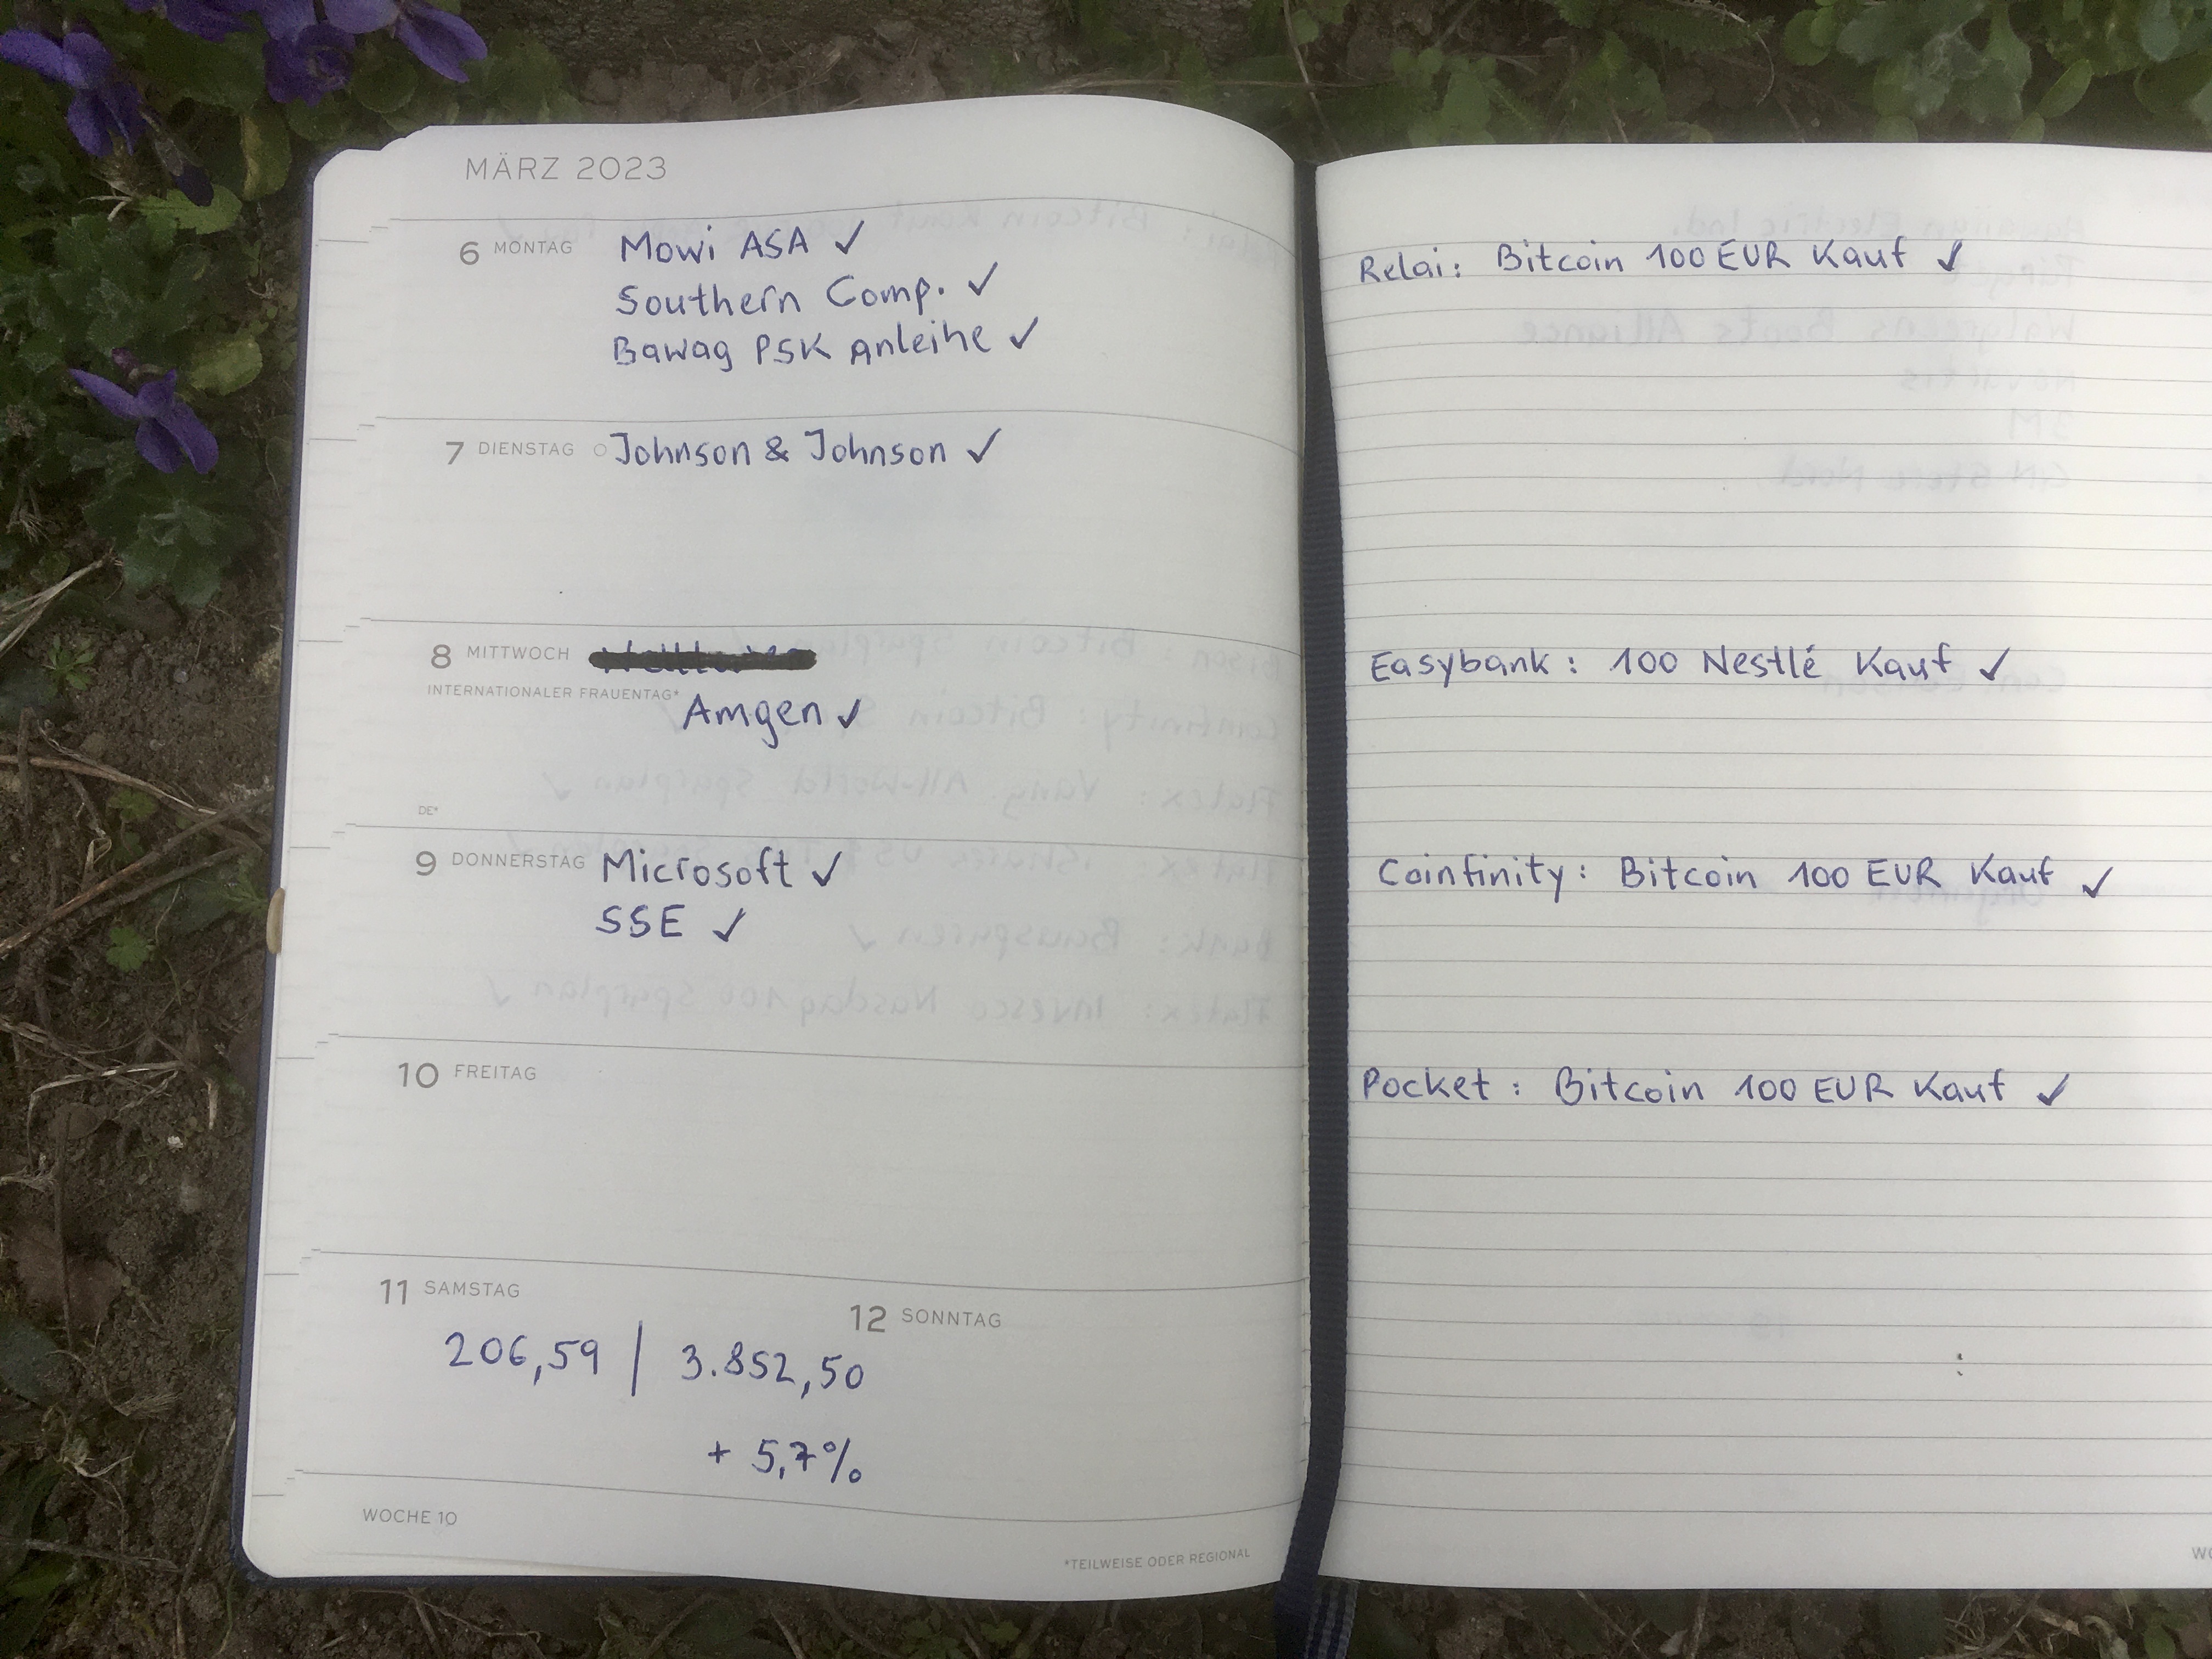 MÄRZ 2023
6 MONTAG Mowi ASA ✓
Southern Comp. ✓
Bawag PSK Anleihe ✓
7 DIENSTAG Johnson & Johnson ✓
8 MITTWOCH
INTERNATIONALER FRAUENTAG*
Amgen ✓
DE*
9 DONNERSTAG Microsoft ✓
SSE ✓
10 FREITAG
11 SAMSTAG
12 SONNTAG
206,59 | 3.852,50
+ 5,7%
WOCHE 10
*TEILWEISE ODER REGIONAL
Relai: Bitcoin 100 EUR Kauf ✓
Easybank: 100 Nestlé Kauf ✓
Coinfinity: Bitcoin 100 EUR Kauf ✓
Pocket: Bitcoin 100 EUR Kauf ✓